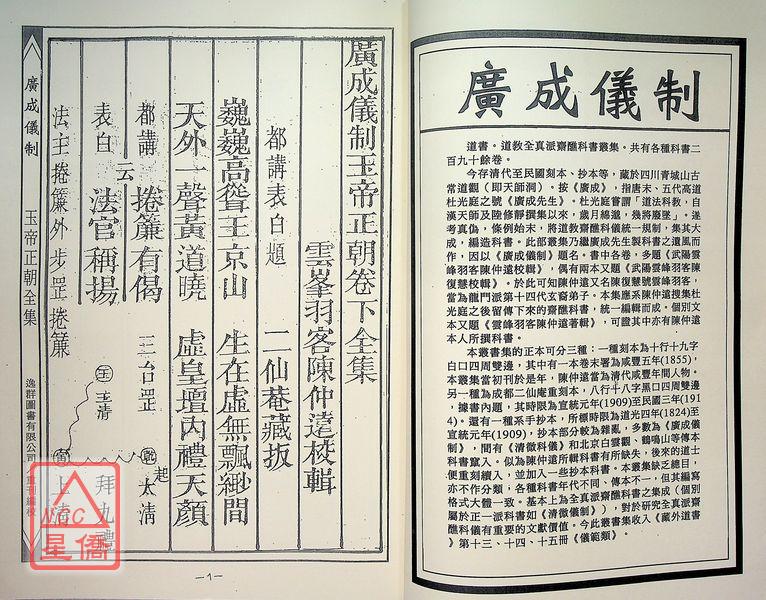 廣成儀制
道書。道教全真派齋醮科書叢集。共有各種科書二
百九十餘卷。
今存清代至民國刻本、抄本等，藏於四川青城山古
常道觀（即天師洞）。按《廣成》，指唐末、五代高道
杜光庭之號《廣成先生》。杜光庭嘗謂「道法科教，自
漢天師及陸修靜撰集以來，歲月綿邈，幾將廢墜」。遂
考真偽，條例始末，將道教齋醮儀統一規制，集其大
成，編造科書。此部叢集乃繼廣成先生製科書之遺風而
作，因以《廣成儀制》題名。書中各卷，多題《武陽雲
峰羽客陳仲遠校輯》，偶有兩本又題《武陽雲峰羽客陳
復慧校輯》。於此可知陳仲遠又名陳復慧號雲峰羽客，
當為龍門派第十四代玄裔弟子。本集應系陳仲遠搜集杜
光庭之後留傳下來的齋醮科書，統一編輯而成。個別文
本又題《雲峰羽客陳仲遠著輯》，可證其中亦有陳仲遠
本人所撰科書。
本叢書集的正本可分三種：一種刻本為十行十九字
白口四周雙邊，其中有一本卷末署為咸豐五年(1855)，
本叢集當初刊於是年，陳仲遠當為清代咸豐年間人物。
另一種為成都二仙庵重刻本，八行十八字黑口四周雙邊
，據書內題，其時限為宣統元年(1909)至民國三年(191
4)。還有一種系手抄本，所標時限為道光四年(1824)至
宣統元年(1909)，抄本部分較為雜亂，多數為《廣成儀
制》，間有《清微科儀》和北京白雲觀、鶴鳴山等傳本
科書竄入。似為陳仲遠所輯科書有所缺失，後來的道士
便重刻續入，並加入一些抄本科書。本叢集缺乏總目，
亦不作分類；各種科書年代不同、傳本不一，但其編寫
格式大體一致。基本上為全真派齋醮科書之集成（個別
屬於正一派科書如《清微儀制》），對於研究全真派齋
醮科儀有重要的文獻價值。今此叢書集收入《藏外道書
》第十三、十四、十五冊《儀範類》。
廣成儀制玉帝正朝卷下全集
雲峯羽客陳仲遠校輯
都講表白題　二仙菴藏板
巍巍高聳玉京山　生在虛無飄緲間
天外一聲黃道曉　虛皇壇內禮天顏
都講　捲簾有偈　三台罡
云
表白　法官稱揚
法主捲簾外步罡捲簾
玉清
太清
起
上清
拜九禮
廣成儀制
玉帝正朝全集
逸群圖書有限公司
重刊編校
NCC
星僑
—1—